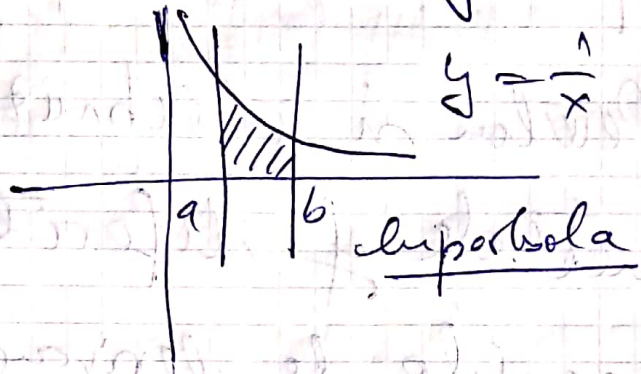 y = 1/x
a b
hiperbola